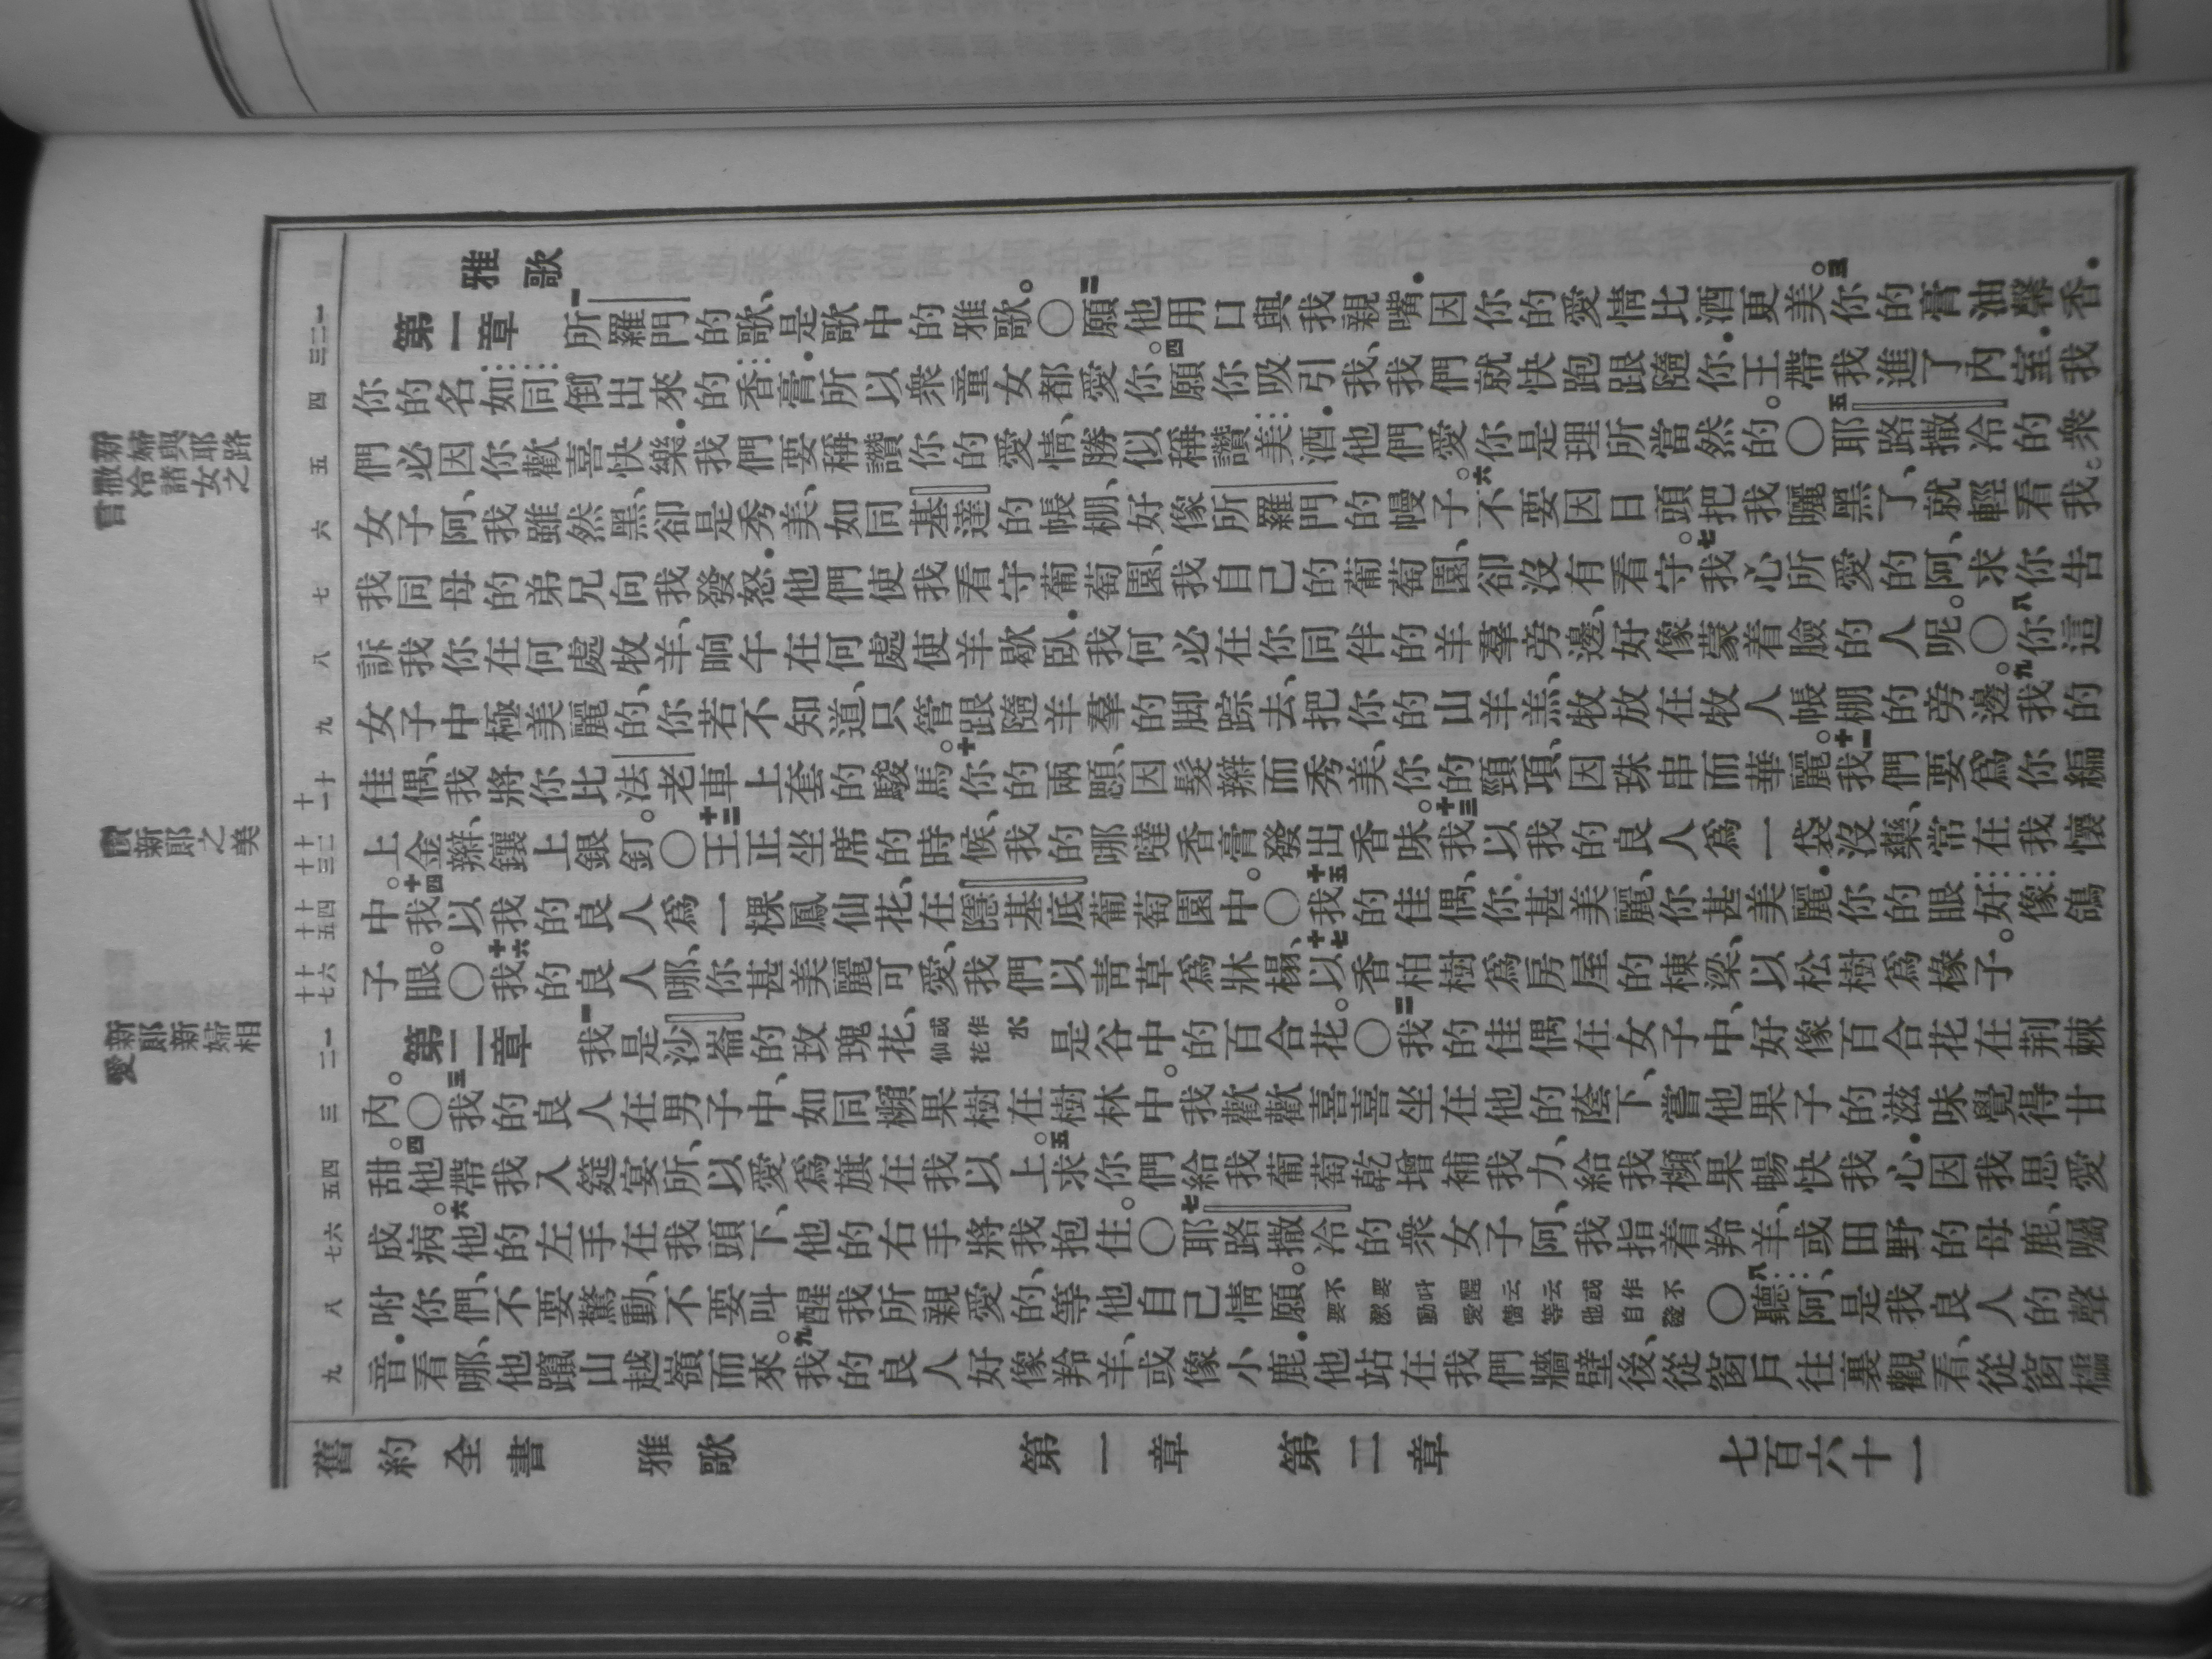 雅歌
第一章 一所羅門的歌、是歌中的雅歌。〇二願他用口與我親嘴．因你的愛情比酒更美。三你的膏油馨香．
你的名如同倒出來的香膏．所以衆童女都愛你。四願你吸引我、我們就快跑跟隨你．王帶我進了內室．我
們必因你歡喜快樂．我們要稱讚你的愛情、勝似稱讚美酒．他們愛你是理所當然的。〇五耶路撒冷的衆
女子阿、我雖然黑、卻是秀美、如同基達的帳棚、好像所羅門的幔子。六不要因日頭把我曬黑了、就輕看我。
我同母的弟兄向我發怒．他們使我看守葡萄園、我自己的葡萄園、卻沒有看守。七我心所愛的阿、求你告
訴我你在何處牧羊、晌午在何處使羊歇臥．我何必在你同伴的羊羣旁邊、好像蒙着臉的人呢。〇八你這
女子中極美麗的、你若不知道、只管跟隨羊羣的脚踪去、把你的山羊羔、牧放在牧人帳棚的旁邊。九我的
佳偶、我將你比法老車上套的駿馬。十你的兩顋、因髮辮而秀美、你的頸項、因珠串而華麗。十一我們要爲你編
上金辮、鑲上銀釘。〇十二王正坐席的時候、我的哪噠香膏發出香味。十三我以我的良人爲一袋沒藥、常在我懷
中。十四我以我的良人爲一棵鳳仙花、在隱基底葡萄園中。〇十五我的佳偶、你甚美麗、你甚美麗．你的眼好像鴿
子眼。〇十六我的良人哪、你甚美麗可愛、我們以青草爲牀榻、十七以香柏樹爲房屋的棟梁、以松樹爲椽子。
第二章 一我是沙崙的玫瑰花、或作水仙花是谷中的百合花。〇二我的佳偶在女子中、好像百合花在荆棘
內。〇三我的良人在男子中、如同蘋果樹在樹林中。我歡歡喜喜坐在他的蔭下、嘗他果子的滋味覺得甘
甜。四他帶我入筵宴所、以愛爲旗在我以上。五求你們給我葡萄乾增補我力、給我蘋果暢快我心．因我思愛
成病。六他的左手在我頭下、他的右手將我抱住。〇七耶路撒冷的衆女子阿、我指着羚羊、或田野的母鹿、囑
咐你們、不要驚動、不要叫醒我所親愛的、等他自己情願。不要叫醒云云或作不要激動愛情等他自發〇八聽阿、是我良人的聲
音．看哪、他躥山越嶺而來。九我的良人好像羚羊、或像小鹿．他站在我們牆壁後、從窗戶往裏觀看、從窗櫺
一 二 三
四
五
六
七
八
九
十 十一
十二 十三
十四 十五
十六 十七
一 二
三
四 五
六 七
八
九
新婦與耶路
撒冷諸女之
言
新郎之美
新郎新婦相
愛
舊約全書 雅歌 第一章 第二章 七百六十一